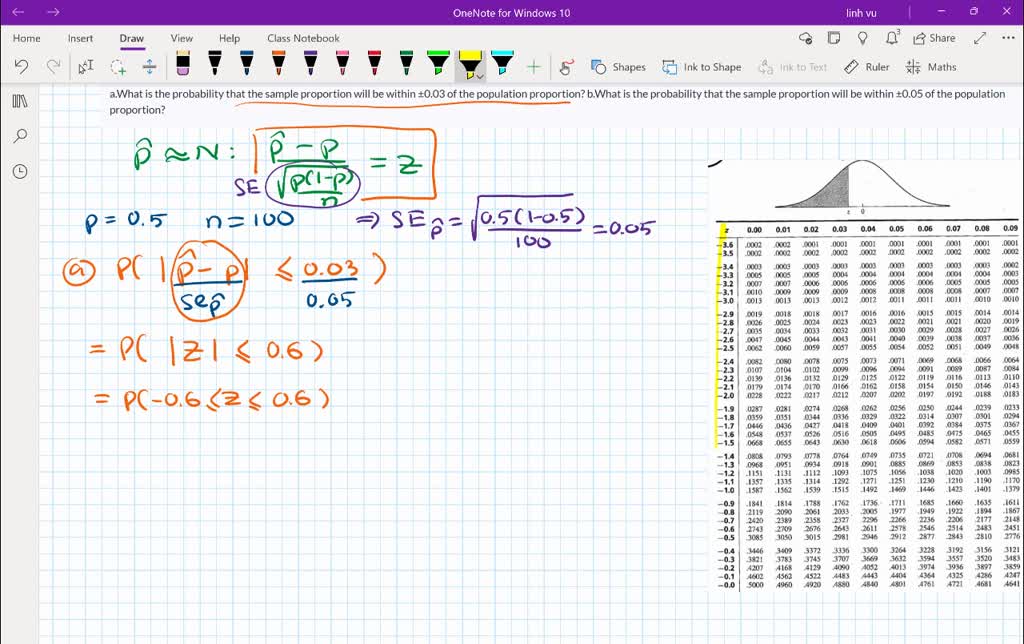 OneNote for Windows 10
linh vu
Home Insert Draw View Help Class Notebook
3 Share
Shapes Ink to Shape Ink to Text Ruler Maths
a.What is the probability that the sample proportion will be within ±0.03 of the population proportion? b.What is the probability that the sample proportion will be within ±0.05 of the population
proportion?
p̂ ≈ N: (p̂ - p) / √(p(1-p)/n) = z
SE
p = 0.5 n = 100 ⇒ SE p̂ = √(0.5(1-0.5)/100) = 0.05
(a) P( |p̂ - p| / se p̂ ≤ 0.03 / 0.05 )
= P( |Z| ≤ 0.6 )
= P(-0.6 ≤ z ≤ 0.6 )
z 0
z 0.00 0.01 0.02 0.03 0.04 0.05 0.06 0.07 0.08 0.09
-3.6 .0002 .0002 .0001 .0001 .0001 .0001 .0001 .0001 .0001 .0001
-3.5 .0002 .0002 .0002 .0002 .0002 .0002 .0002 .0002 .0002 .0002
-3.4 .0003 .0003 .0003 .0003 .0003 .0003 .0003 .0003 .0003 .0002
-3.3 .0005 .0005 .0005 .0004 .0004 .0004 .0004 .0004 .0004 .0003
-3.2 .0007 .0007 .0006 .0006 .0006 .0006 .0006 .0005 .0005 .0005
-3.1 .0010 .0009 .0009 .0009 .0008 .0008 .0008 .0008 .0007 .0007
-3.0 .0013 .0013 .0013 .0012 .0012 .0011 .0011 .0011 .0010 .0010
-2.9 .0019 .0018 .0018 .0017 .0016 .0016 .0015 .0015 .0014 .0014
-2.8 .0026 .0025 .0024 .0023 .0023 .0022 .0021 .0021 .0020 .0019
-2.7 .0035 .0034 .0033 .0032 .0031 .0030 .0029 .0028 .0027 .0026
-2.6 .0047 .0045 .0044 .0043 .0041 .0040 .0039 .0038 .0037 .0036
-2.5 .0062 .0060 .0059 .0057 .0055 .0054 .0052 .0051 .0049 .0048
-2.4 .0082 .0080 .0078 .0075 .0073 .0071 .0069 .0068 .0066 .0064
-2.3 .0107 .0104 .0102 .0099 .0096 .0094 .0091 .0089 .0087 .0084
-2.2 .0139 .0136 .0132 .0129 .0125 .0122 .0119 .0116 .0113 .0110
-2.1 .0179 .0174 .0170 .0166 .0162 .0158 .0154 .0150 .0146 .0143
-2.0 .0228 .0222 .0217 .0212 .0207 .0202 .0197 .0192 .0188 .0183
-1.9 .0287 .0281 .0274 .0268 .0262 .0256 .0250 .0244 .0239 .0233
-1.8 .0359 .0351 .0344 .0336 .0329 .0322 .0314 .0307 .0301 .0294
-1.7 .0446 .0436 .0427 .0418 .0409 .0401 .0392 .0384 .0375 .0367
-1.6 .0548 .0537 .0526 .0516 .0505 .0495 .0485 .0475 .0465 .0455
-1.5 .0668 .0655 .0643 .0630 .0618 .0606 .0594 .0582 .0571 .0559
-1.4 .0808 .0793 .0778 .0764 .0749 .0735 .0721 .0708 .0694 .0681
-1.3 .0968 .0951 .0934 .0918 .0901 .0885 .0869 .0853 .0838 .0823
-1.2 .1151 .1131 .1112 .1093 .1075 .1056 .1038 .1020 .1003 .0985
-1.1 .1357 .1335 .1314 .1292 .1271 .1251 .1230 .1210 .1190 .1170
-1.0 .1587 .1562 .1539 .1515 .1492 .1469 .1446 .1423 .1401 .1379
-0.9 .1841 .1814 .1788 .1762 .1736 .1711 .1685 .1660 .1635 .1611
-0.8 .2119 .2090 .2061 .2033 .2005 .1977 .1949 .1922 .1894 .1867
-0.7 .2420 .2389 .2358 .2327 .2296 .2266 .2236 .2206 .2177 .2148
-0.6 .2743 .2709 .2676 .2643 .2611 .2578 .2546 .2514 .2483 .2451
-0.5 .3085 .3050 .3015 .2981 .2946 .2912 .2877 .2843 .2810 .2776
-0.4 .3446 .3409 .3372 .3336 .3300 .3264 .3228 .3192 .3156 .3121
-0.3 .3821 .3783 .3745 .3707 .3669 .3632 .3594 .3557 .3520 .3483
-0.2 .4207 .4168 .4129 .4090 .4052 .4013 .3974 .3936 .3897 .3859
-0.1 .4602 .4562 .4522 .4483 .4443 .4404 .4364 .4325 .4286 .4247
-0.0 .5000 .4960 .4920 .4880 .4840 .4801 .4761 .4721 .4681 .4641